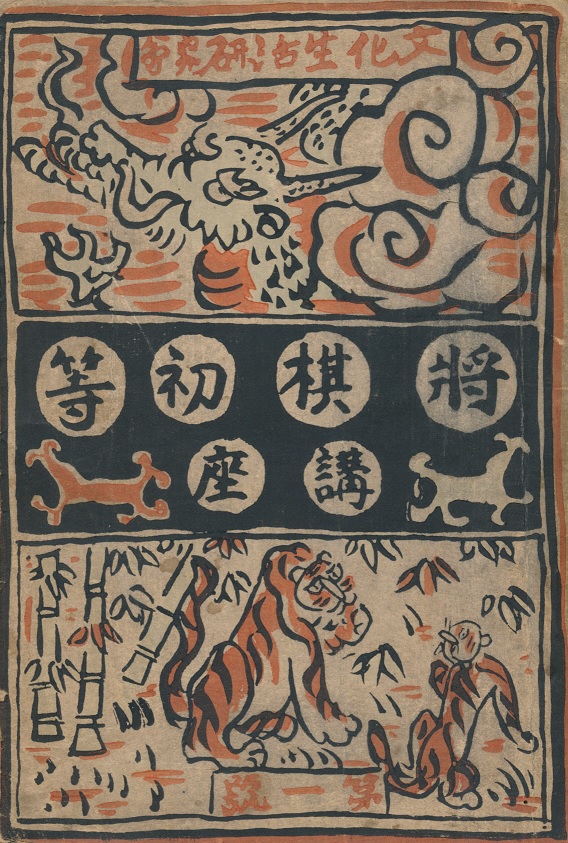 文化生活研究會
將棋初等
講座
第一號